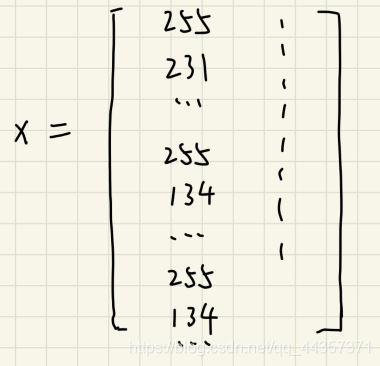 255
231
...
x =
255
134
...
255
134
...
https://blog.csdn.net/qq_44357371